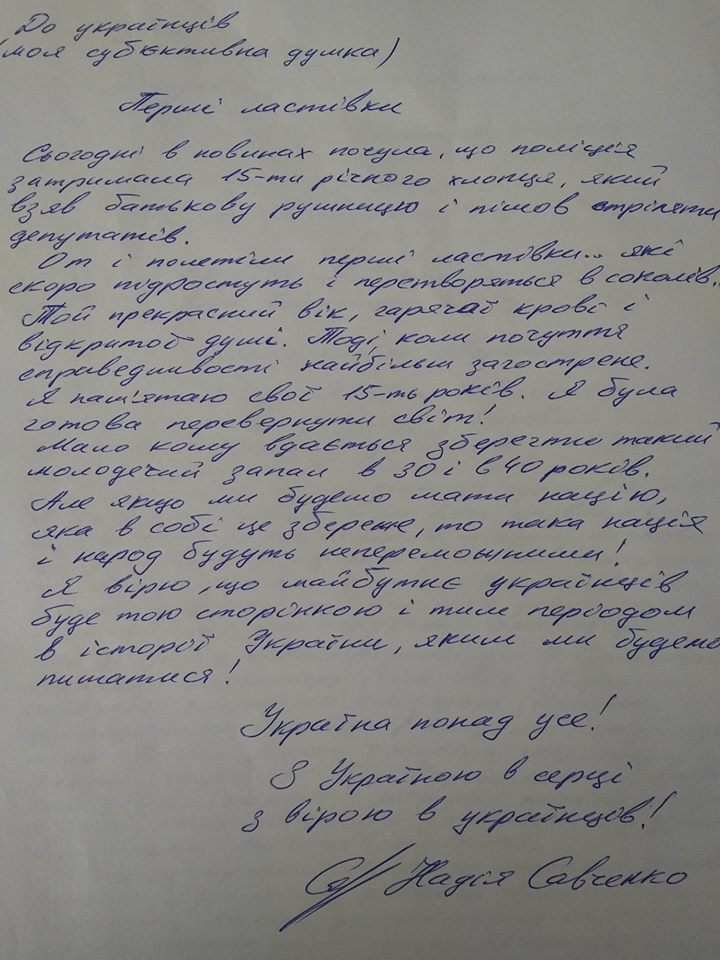 До українців
(моя суб'єктивна думка)
Перші ластівки
Сьогодні в новинах почула, що поліція
затримала 15-ти річного хлопця, який
взяв батькову рушницю і пішов стріляти
депутатів.
От і полетіли перші ластівки... які
скоро підростуть і перетворяться в соколів..
Той прекрасний вік, гарячої крові і
відкритої душі. Тоді, коли почуття
справедливості найбільш загострене.
Я пам'ятаю свої 15-ть років. Я була
готова перевернути світ!
Мало кому вдається зберегти такий
молодечий запал в 30 і в 40 років.
Але якщо ми будемо мати націю,
яка в собі це збереже, то така нація
і народ будуть непереможними!
Я вірю, що майбутнє українців
буде тою сторінкою і тим періодом
в історії України, яким ми будемо
пишатися!
Україна понад усе!
З Україною в серці
з вірою в українців!
Надія Савченко